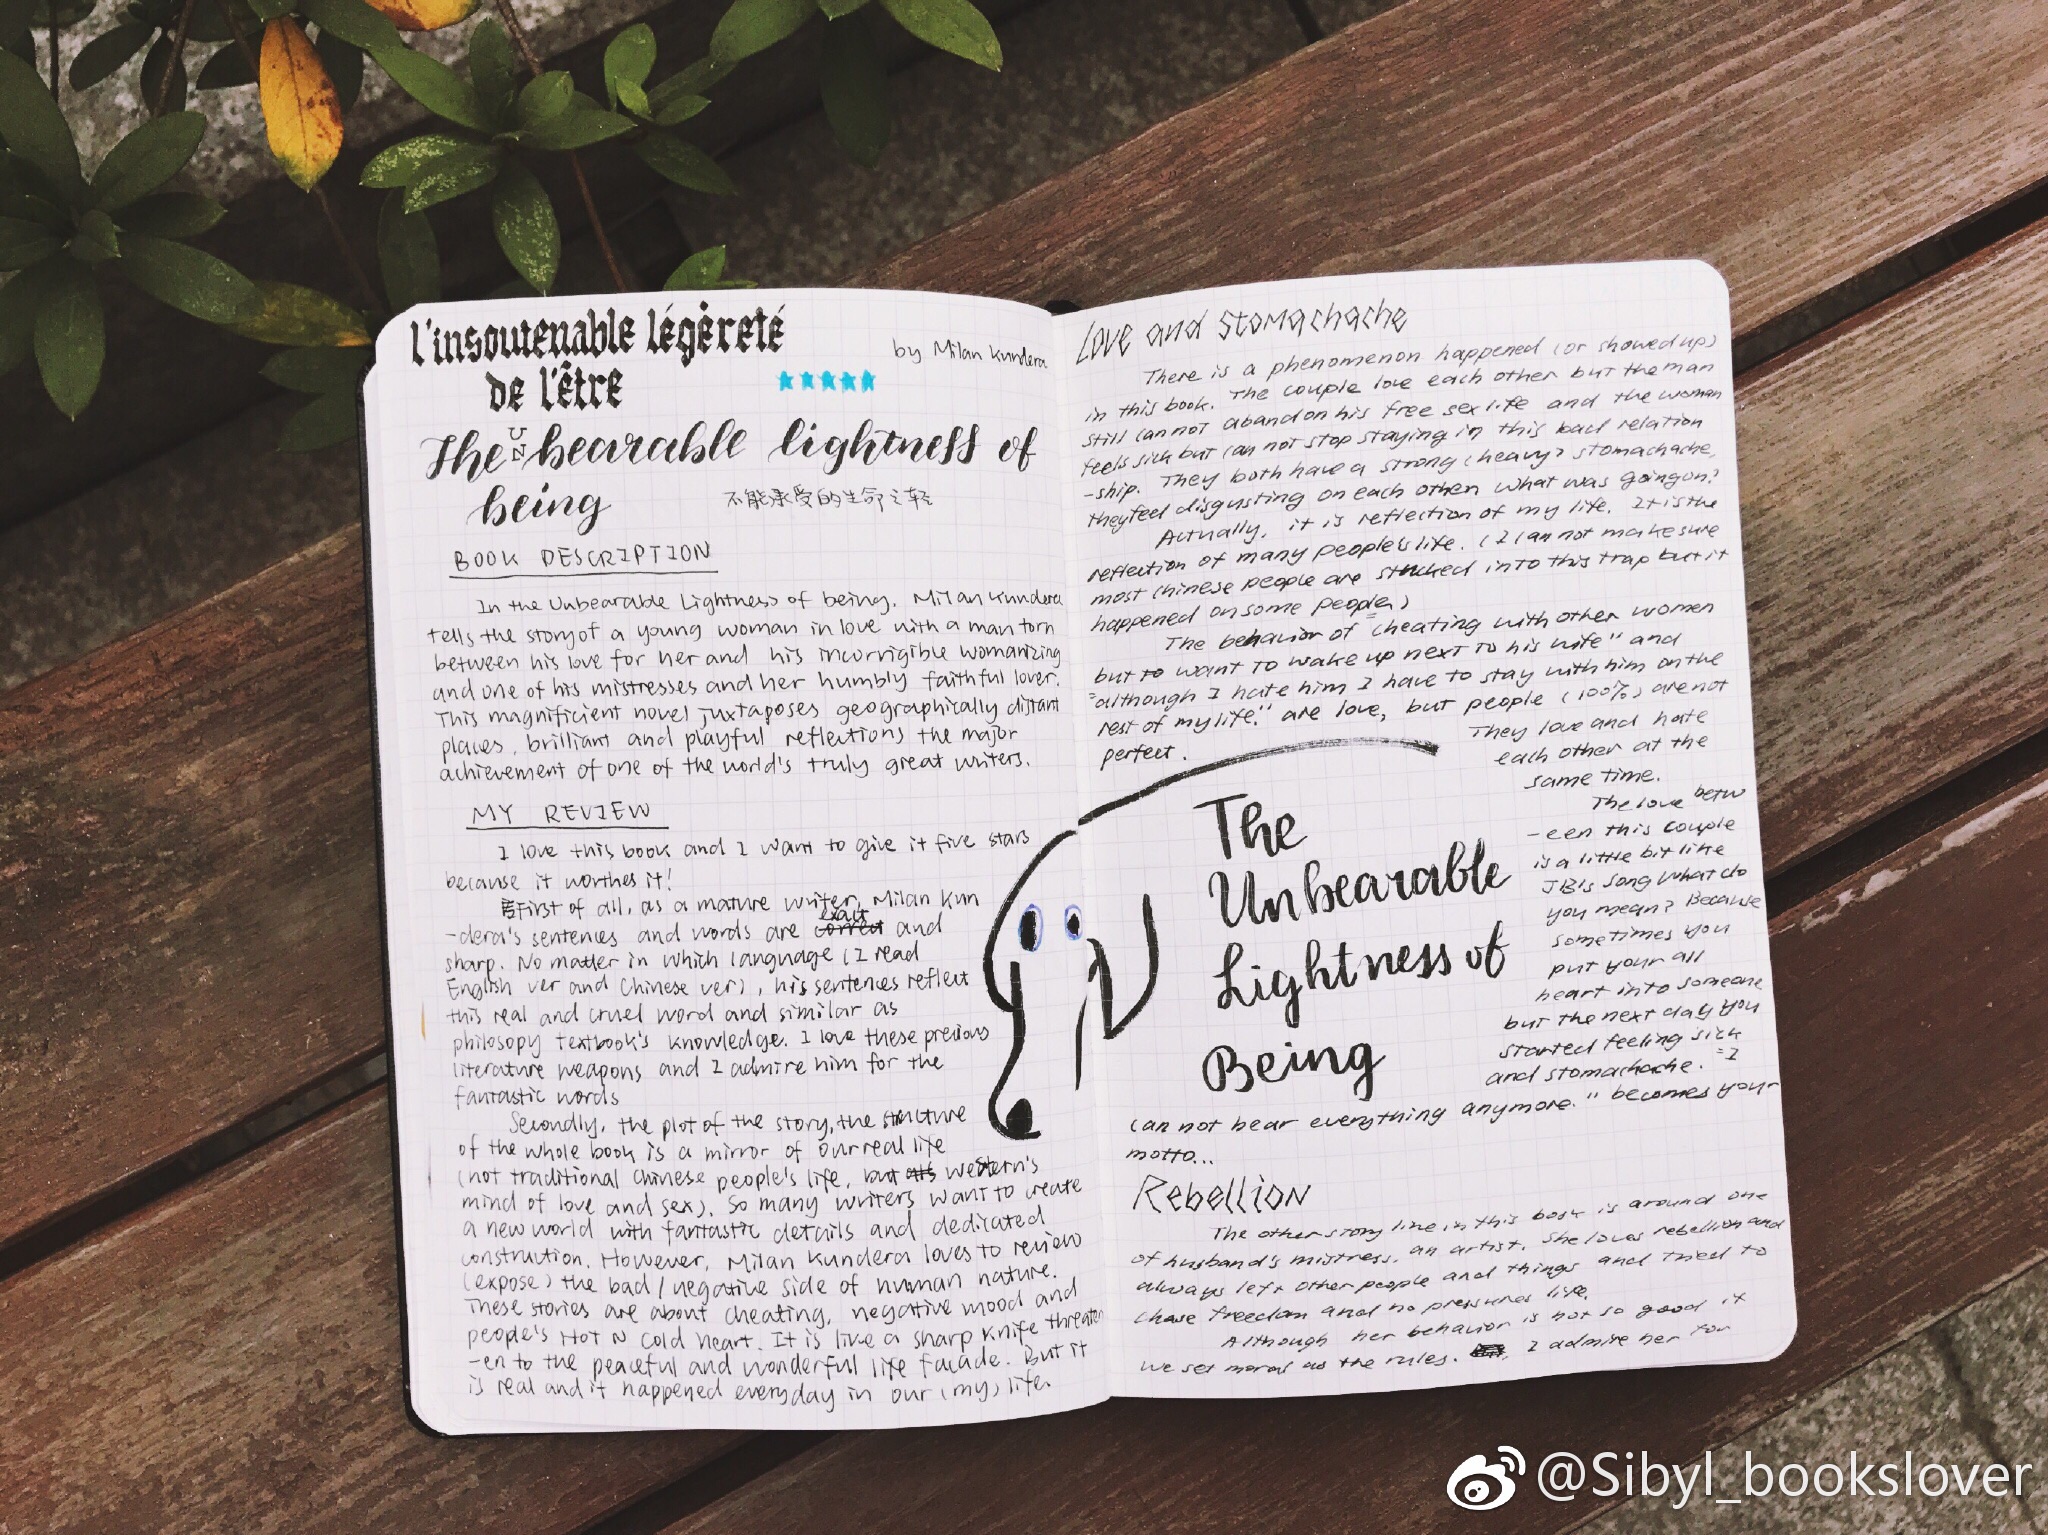 l'insoutenable légèreté
de l'être
by Milan Kundera
The unbearable lightness of
being
不能承受的生命之轻
BOOK DESCRIPTION
In the Unbearable Lightness of being. Milan Kundera
tells the story of a young woman in love with a man torn
between his love for her and his incorrigible womanizing
and one of his mistresses and her humbly faithful lover.
This magnificient novel juxtaposes geographically distant
places, brilliant and playful reflections the major
achievement of one of the world's truly great writers.
MY REVIEW
I love this book and I want to give it five stars
because it worthes it!
First of all, as a mature writer, Milan Kun
-dera's sentences and words are exact and
sharp. No matter in which language (I read
English ver and Chinese ver), his sentences reflect
this real and cruel word and similar as
philosopy textbook's knowledge. I love these precious
literature weapons and I admire him for the
fantastic words
Secondly, the plot of the story, the structure
of the whole book is a mirror of our real life
(not traditional Chinese people's life, but western's
mind of love and sex). So many writers want to create
a new world with fantastic details and dedicated
construction. However, Milan Kundera loves to review
(expose) the bad/negative side of human nature.
These stories are about cheating, negative mood and
people's HOT N cold heart. It is like a sharp knife threaten
-en to the peaceful and wonderful life facade. But it
is real and it happened everyday in our (my) life.
Love and Stomachache
There is a phenomenon happened (or showed up)
in this book. The couple love each other but the man
still can not abandon his free sex life and the woman
feels sick but can not stop staying in this bad relation
-ship. They both have a strong (heavy) stomachache,
they feel disgusting on each other. what was going on?
Actually, it is reflection of my life. It is the
reflection of many people's life. (I can not make sure
most Chinese people are stucked into this trap but it
happened on some people)
The behavior of "cheating with other women
but to want to wake up next to his wife" and
"although I hate him I have to stay with him on the
rest of my life." are love, but people (100%) are not
perfect.
They love and hate
each other at the
same time.
The love betw
-een this couple
is a little bit like
JB's song What do
you mean? Because
sometimes you
put your all
heart into someone
but the next day you
started feeling sick
and stomachache. "I
can not bear everything anymore." becomes your
motto...
The
Unbearable
Lightness of
Being
Rebellion
The other story line in this book is around one
of husband's mistress. an artist. She loves rebellion and
always left other people and things and tried to
chase freedom and no pressures life.
Although her behavior is not so good if
we set moral as the rules. I admire her for
@Sibyl_bookslover